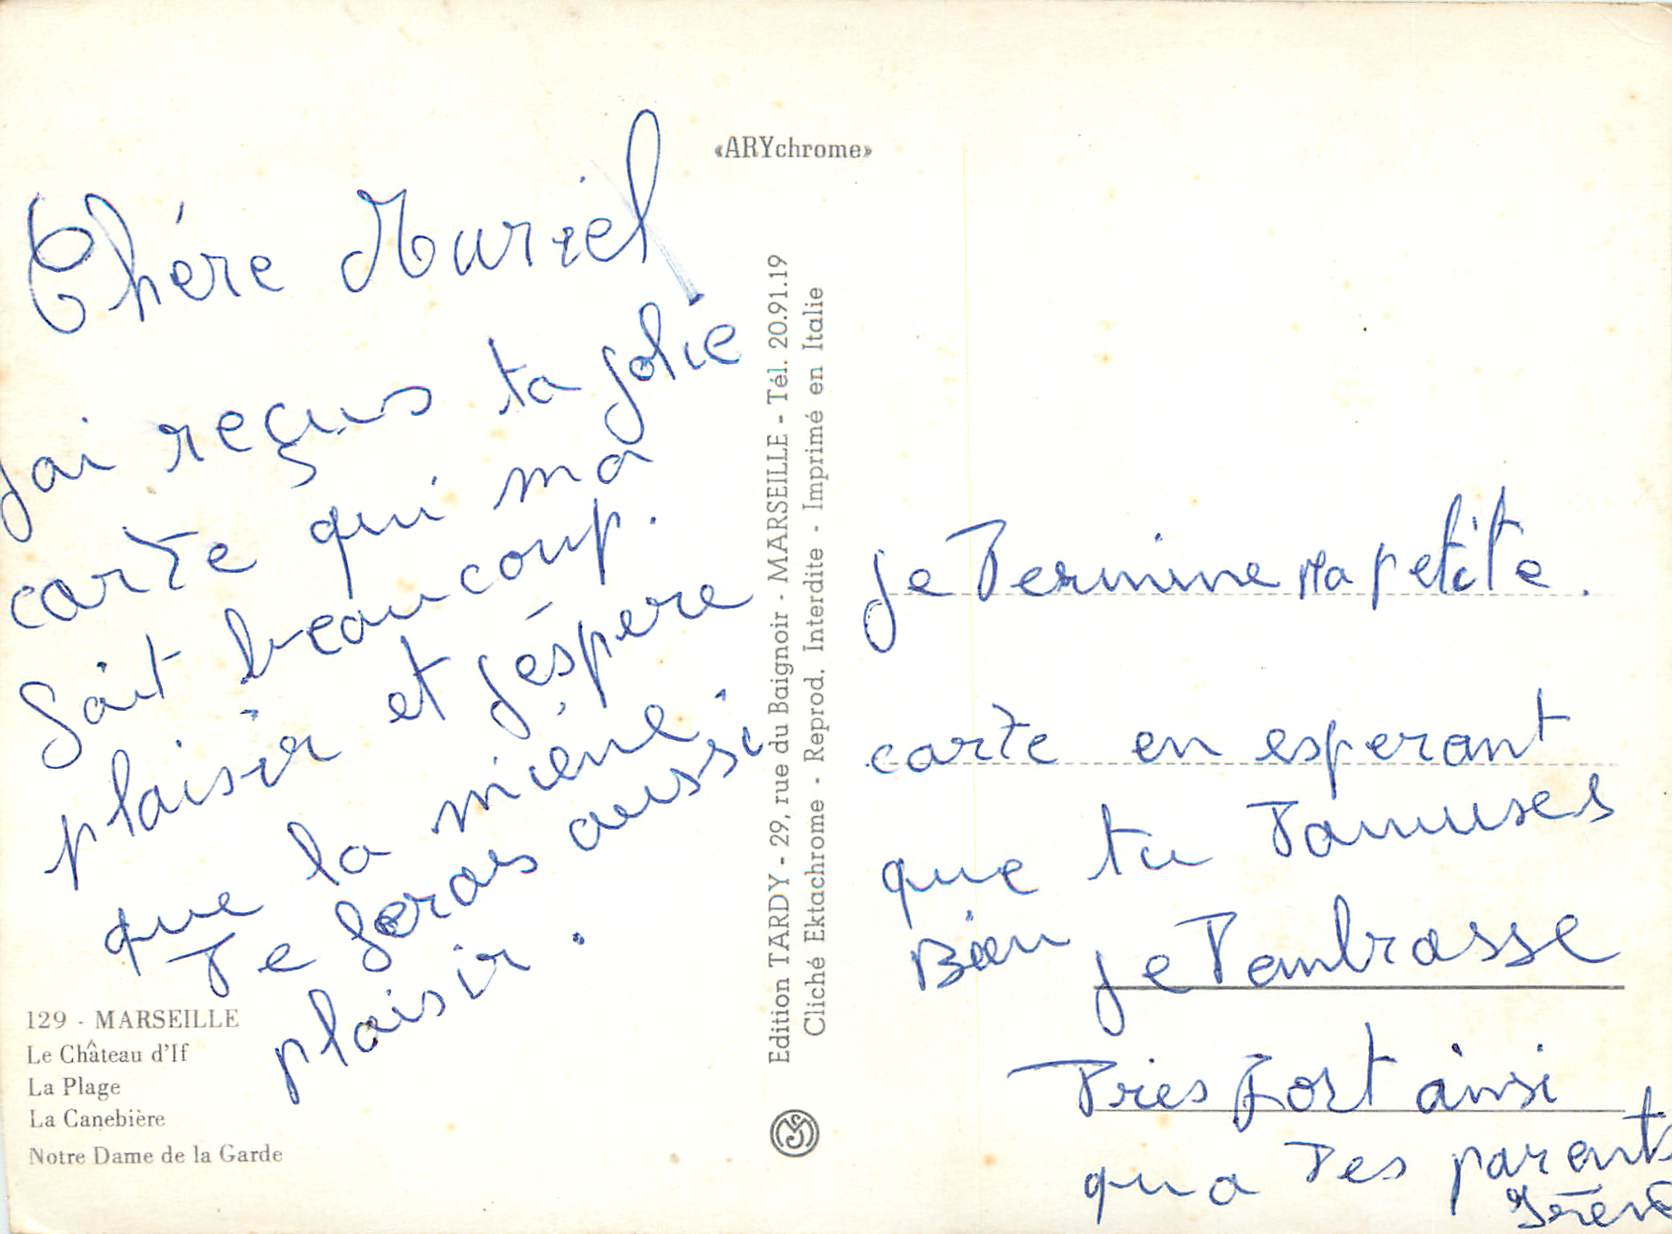 «ARYchrome»
Chére Muriel
jai reçus ta jolie
carte qui ma
fait beaucoup.
plaisir et jéspere
que la miene.
Te feras aussi
plaisir.
129 - MARSEILLE
Le Château d'If
La Plage
La Canebière
Notre Dame de la Garde
Edition TARDY - 29, rue du Baignoir - MARSEILLE - Tél. 20.91.19
Cliché Ektachrome - Reprod. Interdite - Imprimé en Italie
je Termine Ma petite.
carte en esperant
que tu Tamuses
Bien je Tembrasse
Tries fort ainsi
qua Tes parents